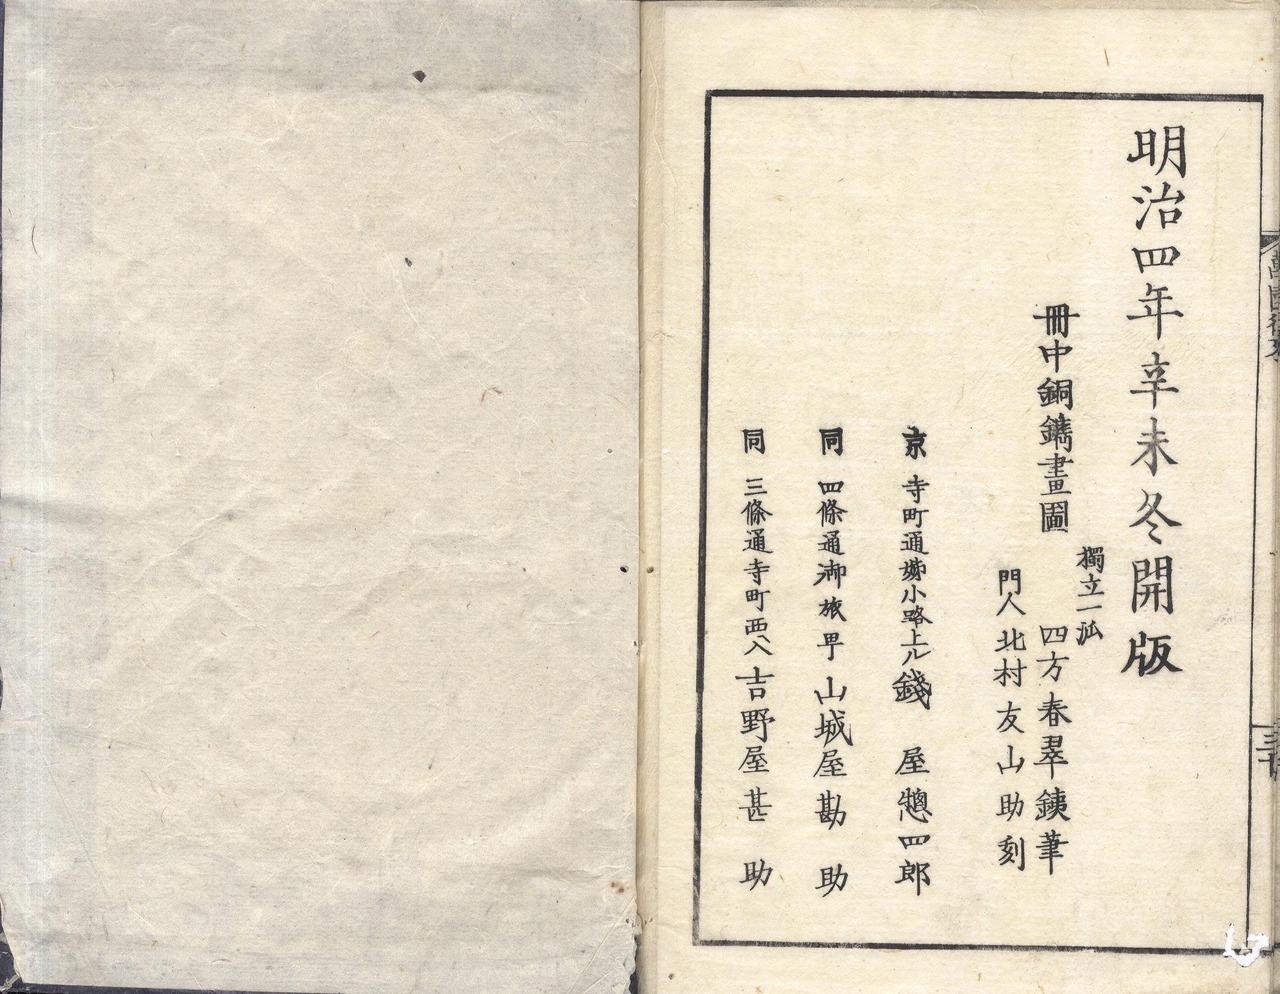 明治四年辛未冬開版
冊中銅鐫畫圖
獨立一泒
四方春翠銕筆
門人 北村友山助刻
京 寺町通姊小路上ル 錢屋惣四郎
同 四條通御旅町 山城屋勘助
同 三條通寺町西入 吉野屋甚助
萬國